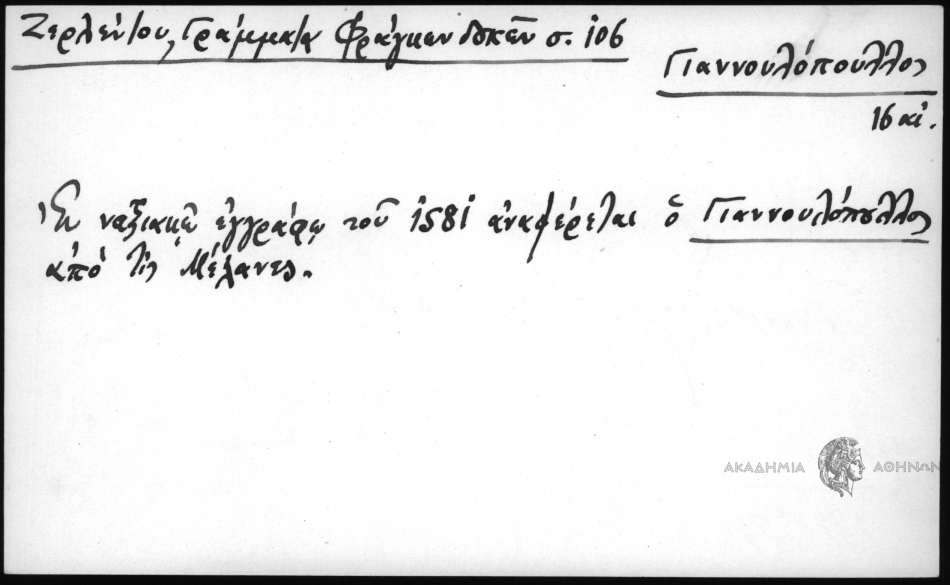 Ζερλέντου, Γράμματα Φράγκων δουκῶν σ. 106
Γιαννουλόπουλλος
16 αἰ.
Ἐν ναξιακῷ ἐγγράφῳ τοῦ 1581 ἀναφέρεται ὁ Γιαννουλόπουλλος
ἀπὸ τὶς Μέλανες.
ΑΚΑΔΗΜΙΑ ΑΘΗΝΩΝ